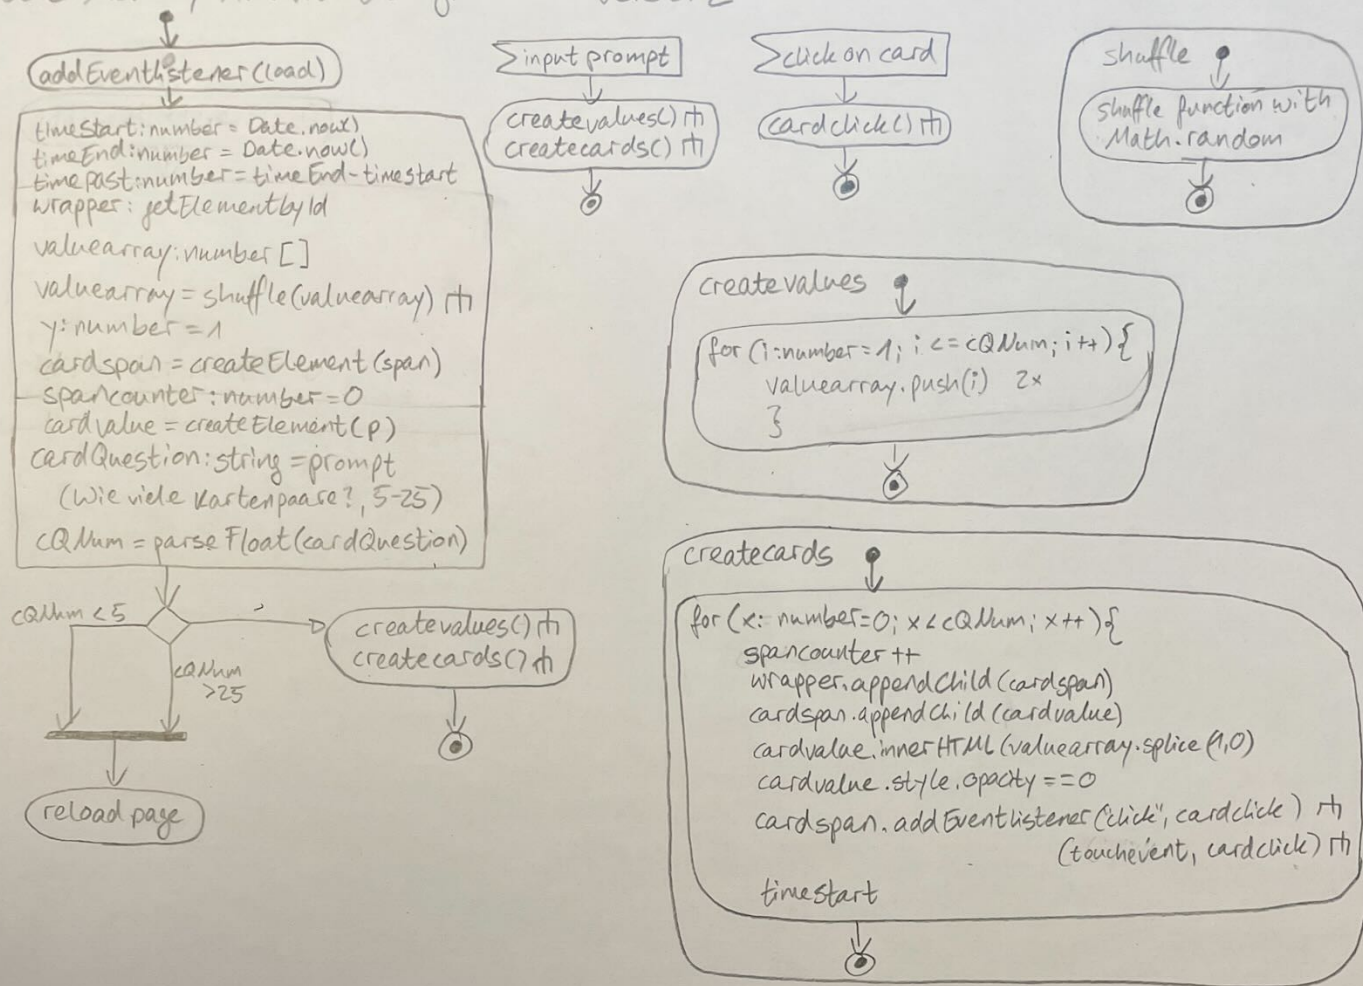 addEventlistener(load)
timeStart:number = Date.now()
timeEnd:number = Date.now()
timepast:number=timeEnd-timestart
wrapper: getElementbyId
valuearray:number []
valuearray = shuffle(valuearray)
y:number = 1
cardspan = createElement(span)
spancounter:number=0
cardvalue = createElement(p)
cardQuestion:string=prompt
(Wie viele Kartenpaare?, 5-25)
cQNum = parseFloat(cardQuestion)
cQNum <5
cQNum
>25
reload page
createvalues()
createcards()
input prompt
createvalues()
createcards()
click on card
cardclick()
shuffle
shuffle function with
Math.random
createvalues
for (i:number=1; i <= cQNum; i++){
valuearray.push(i) 2x
}
createcards
for (x: number=0; x<cQNum; x++){
spancounter++
wrapper.appendChild(cardspan)
cardspan.appendChild(cardvalue)
cardvalue.innerHTML(valuearray.splice(1,0)
cardvalue.style.opacity==0
cardspan.addEventlistener("click", cardclick)
(touchevent, cardclick)
timestart